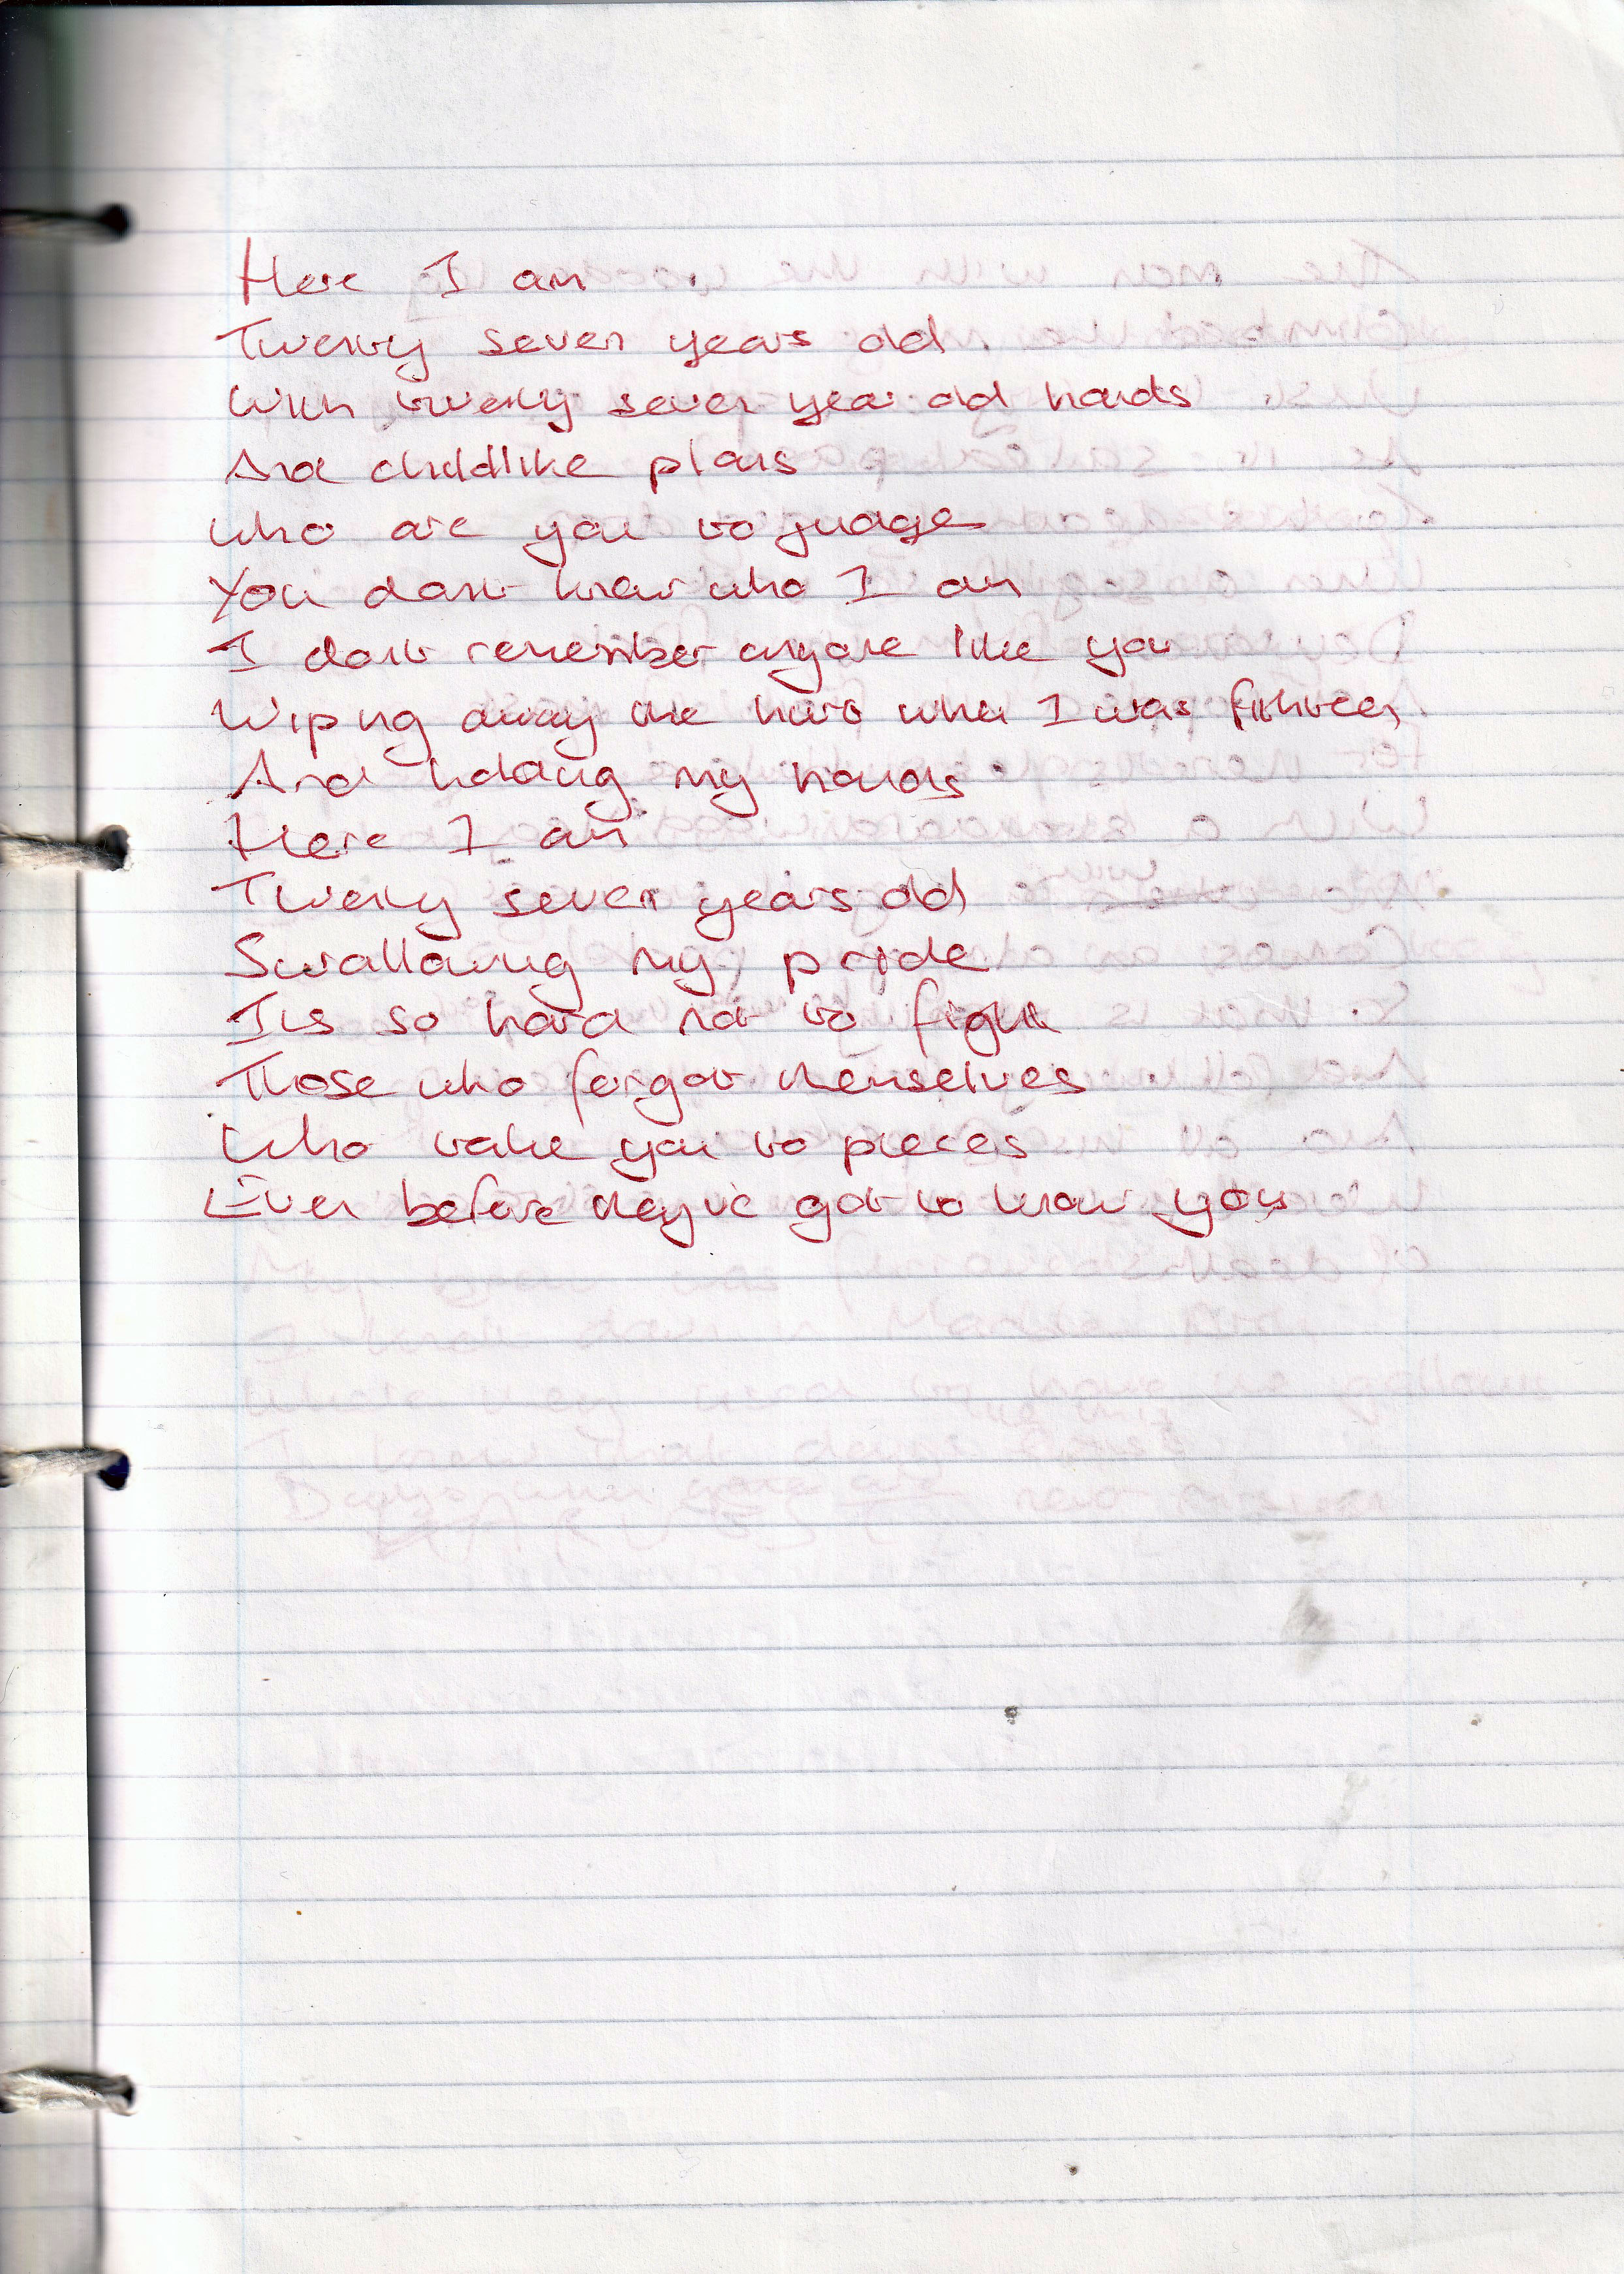 Here I am
Twenty seven years old
With twenty seven year old hands
And childlike plans
Who are you to judge
You dont know who I am
I dont remember anyone like you
Wiping away the hurt when I was fifhteen
And holding my hands
Here I am
Twenty seven years old
Swallowing my pride
Its so hard not to fight
Those who forgot themselves
Who take you to pieces
Even before they've got to know you